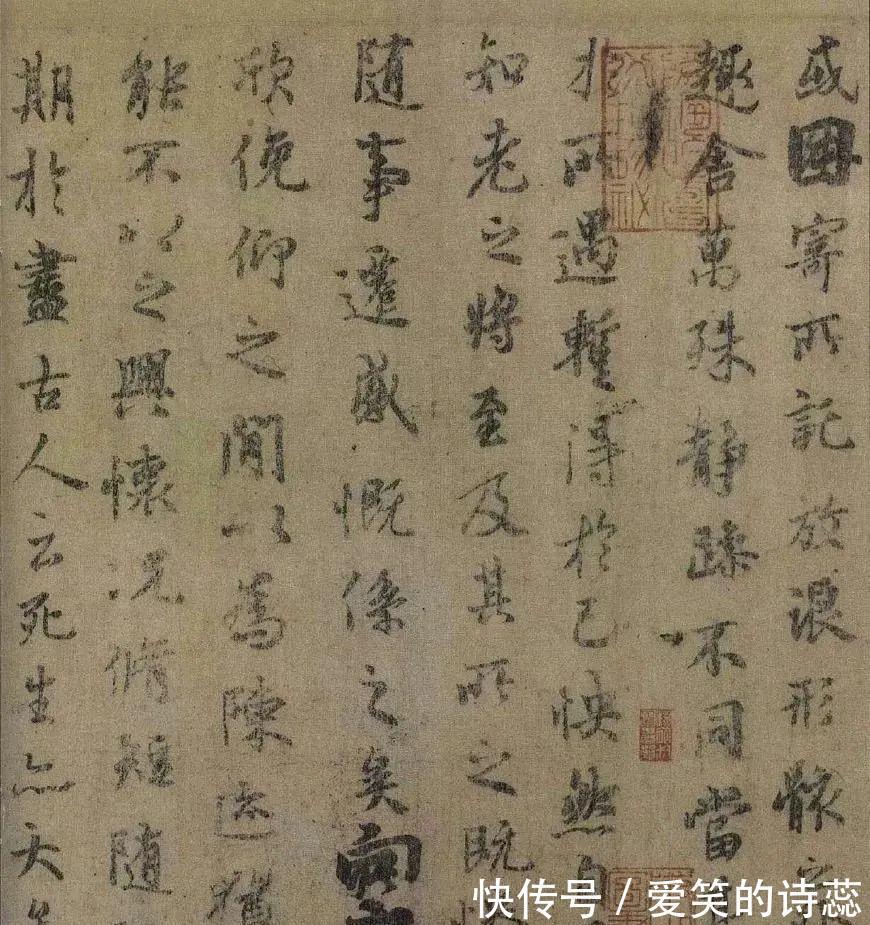 或因寄所託放浪形骸之
趣舍萬殊静躁不同當
於所遇暫得於己怏然自
知老之將至及其所之既
随事遷感慨係之矣向
欣俛仰之閒以為陳迹猶
能不以之興懷况脩短随
期於盡古人云死生亦大矣
快传号 / 爱笑的诗蕊